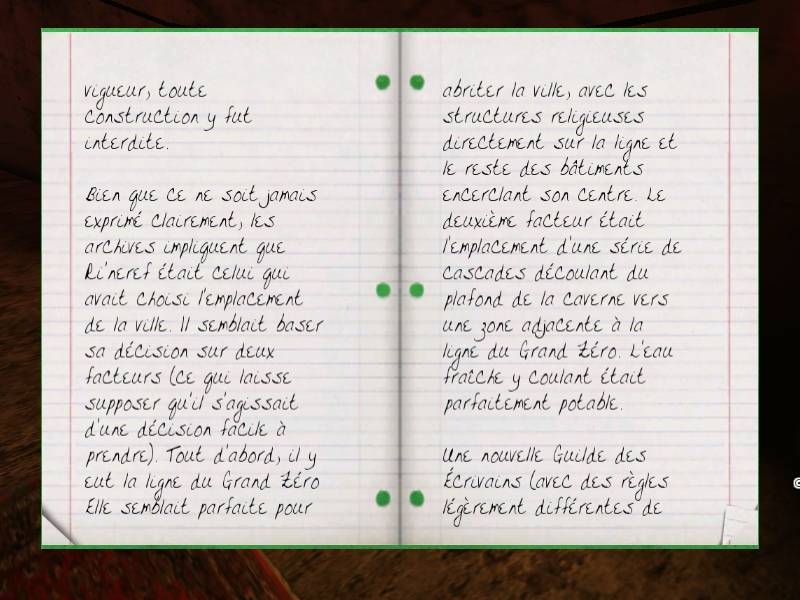 vigueur, toute
construction y fut
interdite.
Bien que ce ne soit jamais
exprimé clairement, les
archives impliquent que
Ri'neref était celui qui
avait choisi l'emplacement
de la ville. Il semblait baser
sa décision sur deux
facteurs (ce qui laisse
supposer qu'il s'agissait
d'une décision facile à
prendre). Tout d'abord, il y
eut la ligne du Grand Zéro
Elle semblait parfaite pour
abriter la ville, avec les
structures religieuses
directement sur la ligne et
le reste des bâtiments
encerclant son centre. Le
deuxième facteur était
l'emplacement d'une série de
cascades découlant du
plafond de la caverne vers
une zone adjacente à la
ligne du Grand Zéro. L'eau
fraîche y coulant était
parfaitement potable.
Une nouvelle Guilde des
Écrivains (avec des règles
légèrement différentes de
©